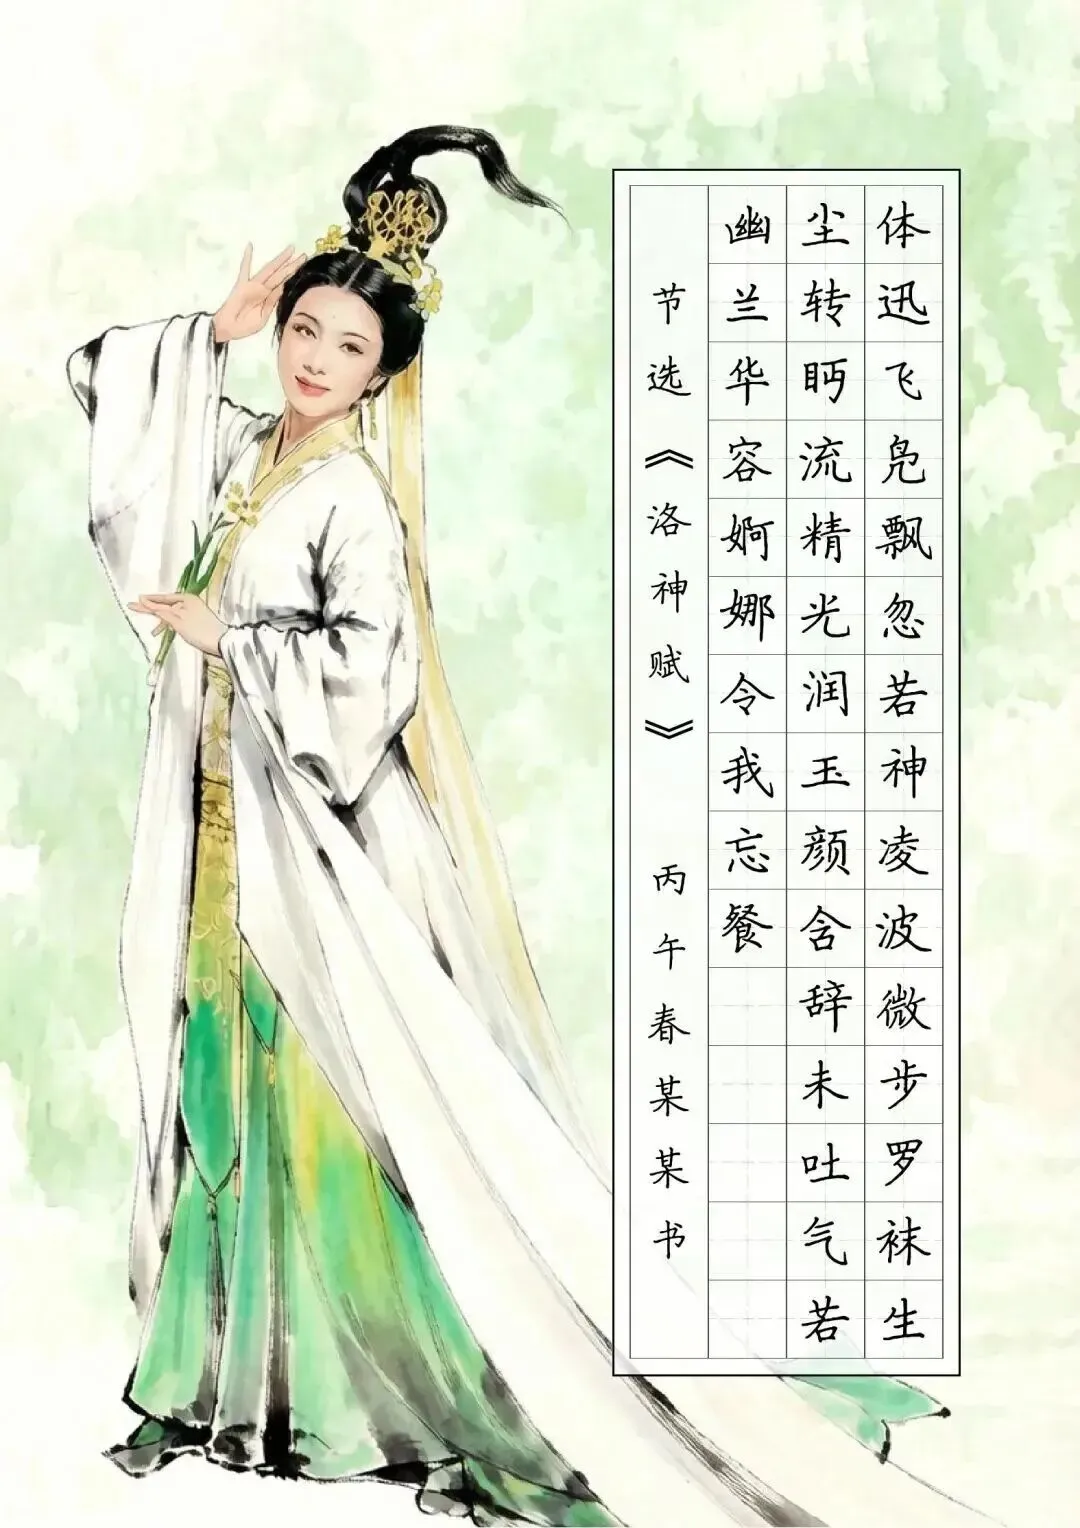 体迅飞凫飘忽若神凌波微步罗袜生
尘转眄流精光润玉颜含辞未吐气若
幽兰华容婀娜令我忘餐
节选《洛神赋》 丙午春某某书